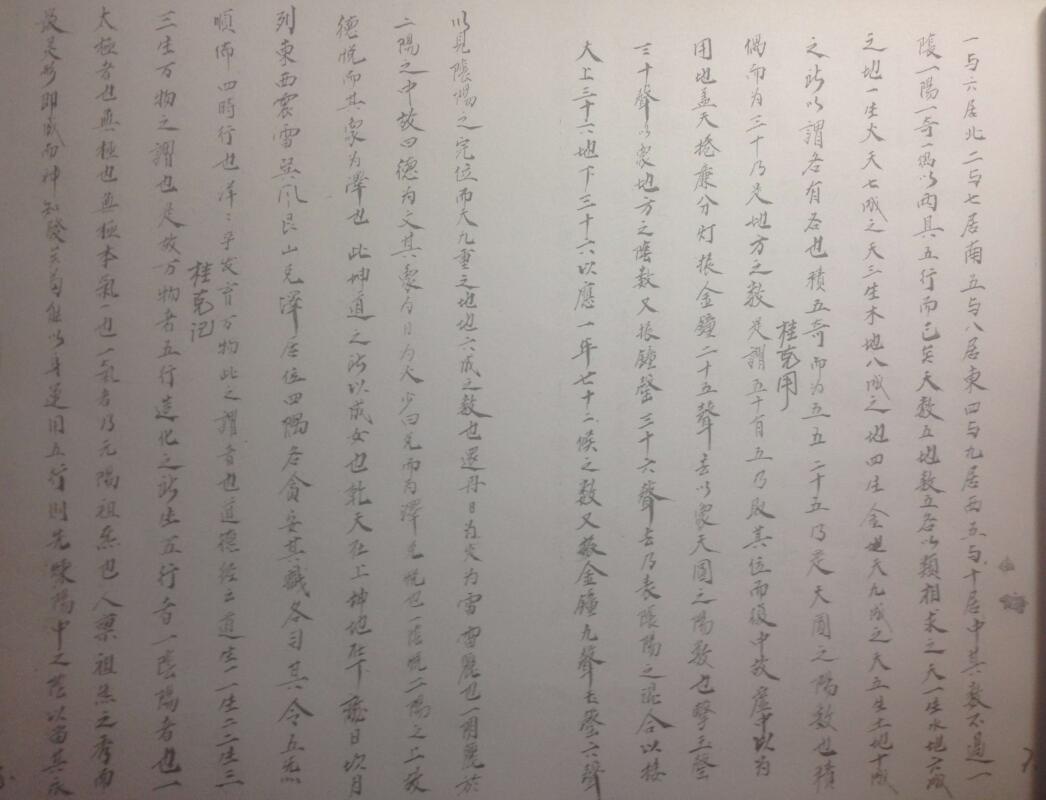 一与六居北二与七居南五与八居東四与九居西五与十居中其数不過一
陰一陽一奇一偶以两其五行而已矣天数五地数五各以類相求之天一生水地六成
之地二生火天七成之天三生木地八成之地四生金也天九成之天五生土地十成
之所以謂各有合也積五奇而为五五二十五乃是天圓之陽数也積
偶而为三十乃是地方之数是謂五十有五乃取其位而復中故虛中以为
用也盖天捲廉分灯振金鐘二十五聲者以象天圓之陽数也擊玉磬
三十聲以象地方之陰数又振鐘磬三十六聲者乃表陰陽之混合以接
天上三十六地下三十六以應一年七十二候之数又振金鐘九聲玉磬六聲
以見陰陽之定位而天九重之地也六成之数也還丹日为火为雷雷麗也一爾麗於
二陽之中故曰德为文其象为日为火少曰兑而为澤兑悦也一陰悦二陽之上故
德悦而其象为澤也此坤道之所以成女也乾天在上坤地在下离日坎月
列東西震雷巽风艮山兑澤居位四隅各貪安其職各司其令五炁
順而四時行也洋洋乎发育万物此之謂者也道德经云道生一生二二生三
三生万物之謂也是故万物者五行造化之所生五行者一陰陽者也一
太極者也無極也無極本氣一也一氣者乃元陽祖炁也人稟祖炁之秀而
最灵形即成而神知發矣苟能以身逆用五行則先煉陽中之陰以笛其水
桂克用
桂克记